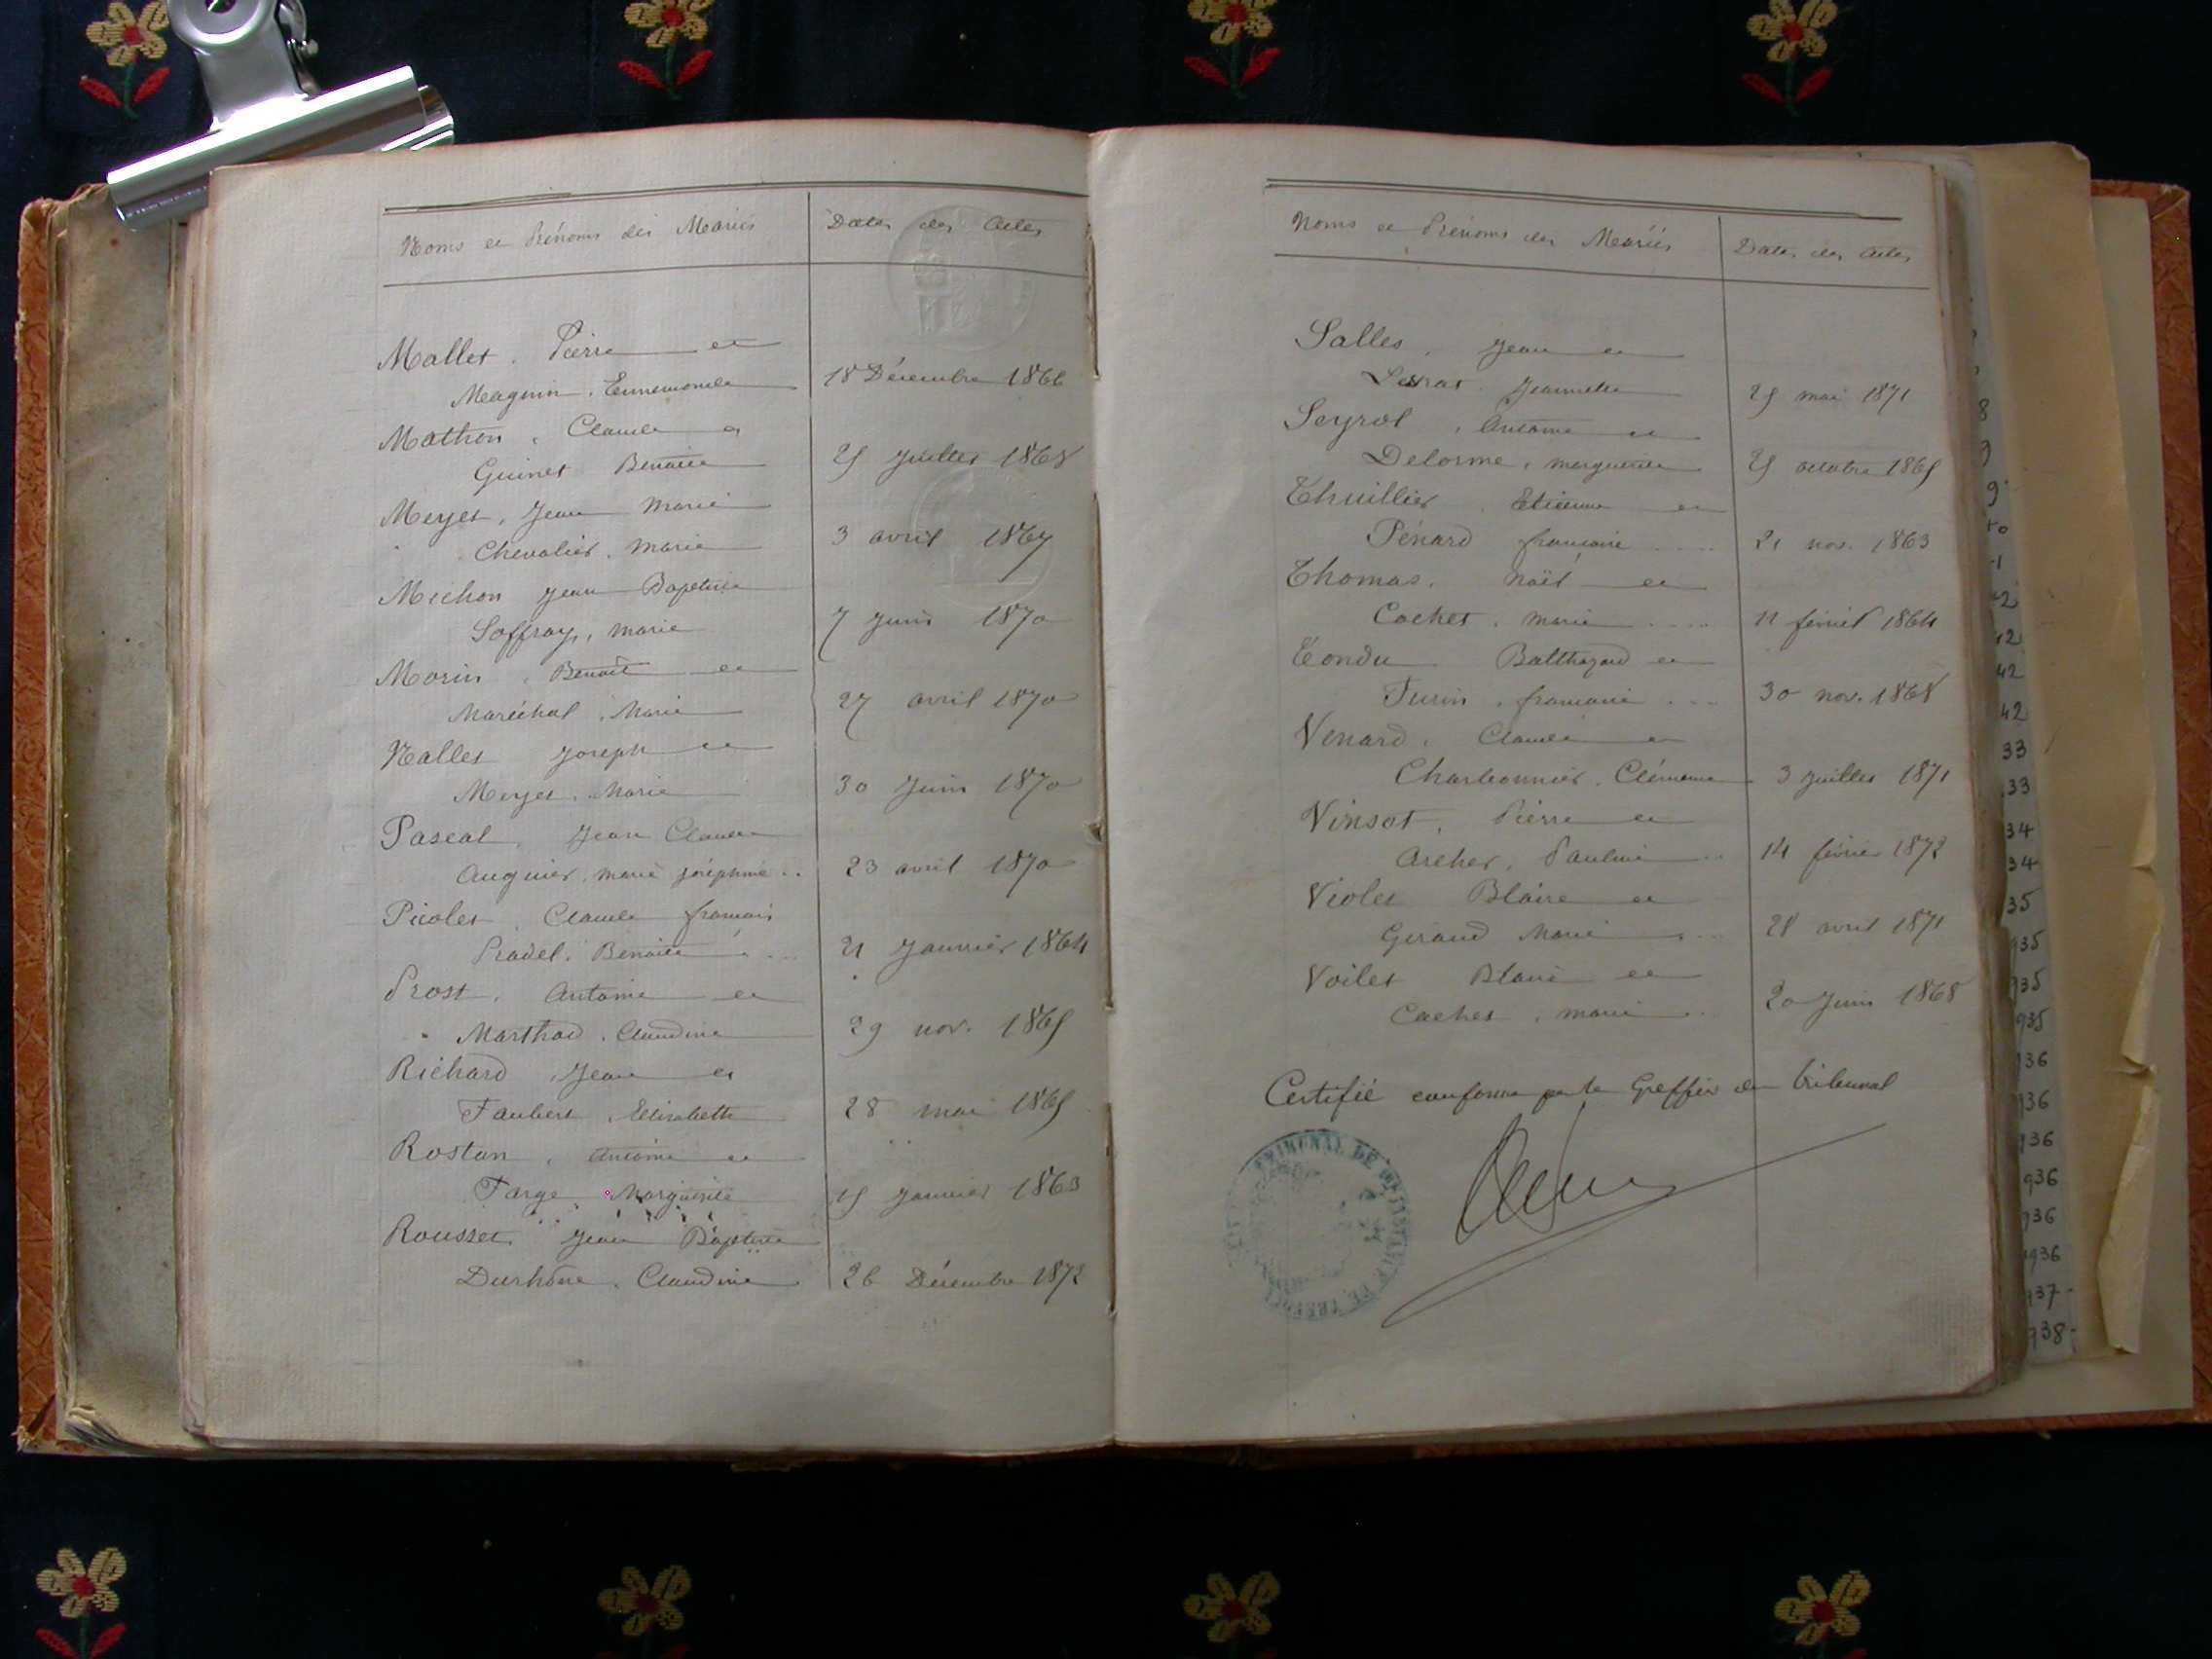 Noms et Prénoms des Mariés
Dates des Actes
Mallet, Pierre et
Magnin, Ennemonde
18 Décembre 1866
Mathon, Claude et
Guinet Benoite
25 Juillet 1868
Meyet, Jean Marie
Chevalier, Marie
3 avril 1867
Michon Jean Baptiste
Soffray, Marie
7 Juin 1870
Morin, Benoît et
Maréchal, Marie
27 avril 1870
Nallet Joseph et
Meyet, Marie
30 Juin 1870
Pascal, Jean Claude
Auguier, Marie Joséphine
23 avril 1870
Picolet, Claude françois
Pradel, Benoite
21 Janvier 1864
Prost, Antoine et
Marthod, Claudine
29 nov. 1865
Richard, Jean et
Faubert, Elisabeth
28 mai 1865
Rostan, Antoine et
Farge, Marguerite
15 Janvier 1863
Rousset, Jean Baptiste
Durhône, Claudine
26 Décembre 1872
Noms et Prénoms des Mariés
Dates des Actes
Salles, Jean et
Jeannette
25 mai 1871
Seyrol, Antoine et
Delorme, Marguerite
25 octobre 1865
Thuillier, Etienne et
Pénard françoise
21 nov. 1863
Thomas, Noël et
Cochet, Marie
11 février 1864
Tondu Balthazard et
Turin, françoise
30 nov. 1868
Venard, Claude et
Charbonnier, Clémence
3 Juillet 1871
Vinsot, Pierre et
Archer, Pauline
14 février 1872
Violet Blaise et
Giraud Marie
28 avril 1871
Voilet Blaise et
Cachet, Marie
20 Juin 1868
Certifié conforme par le Greffier du tribunal
TRIBUNAL DE